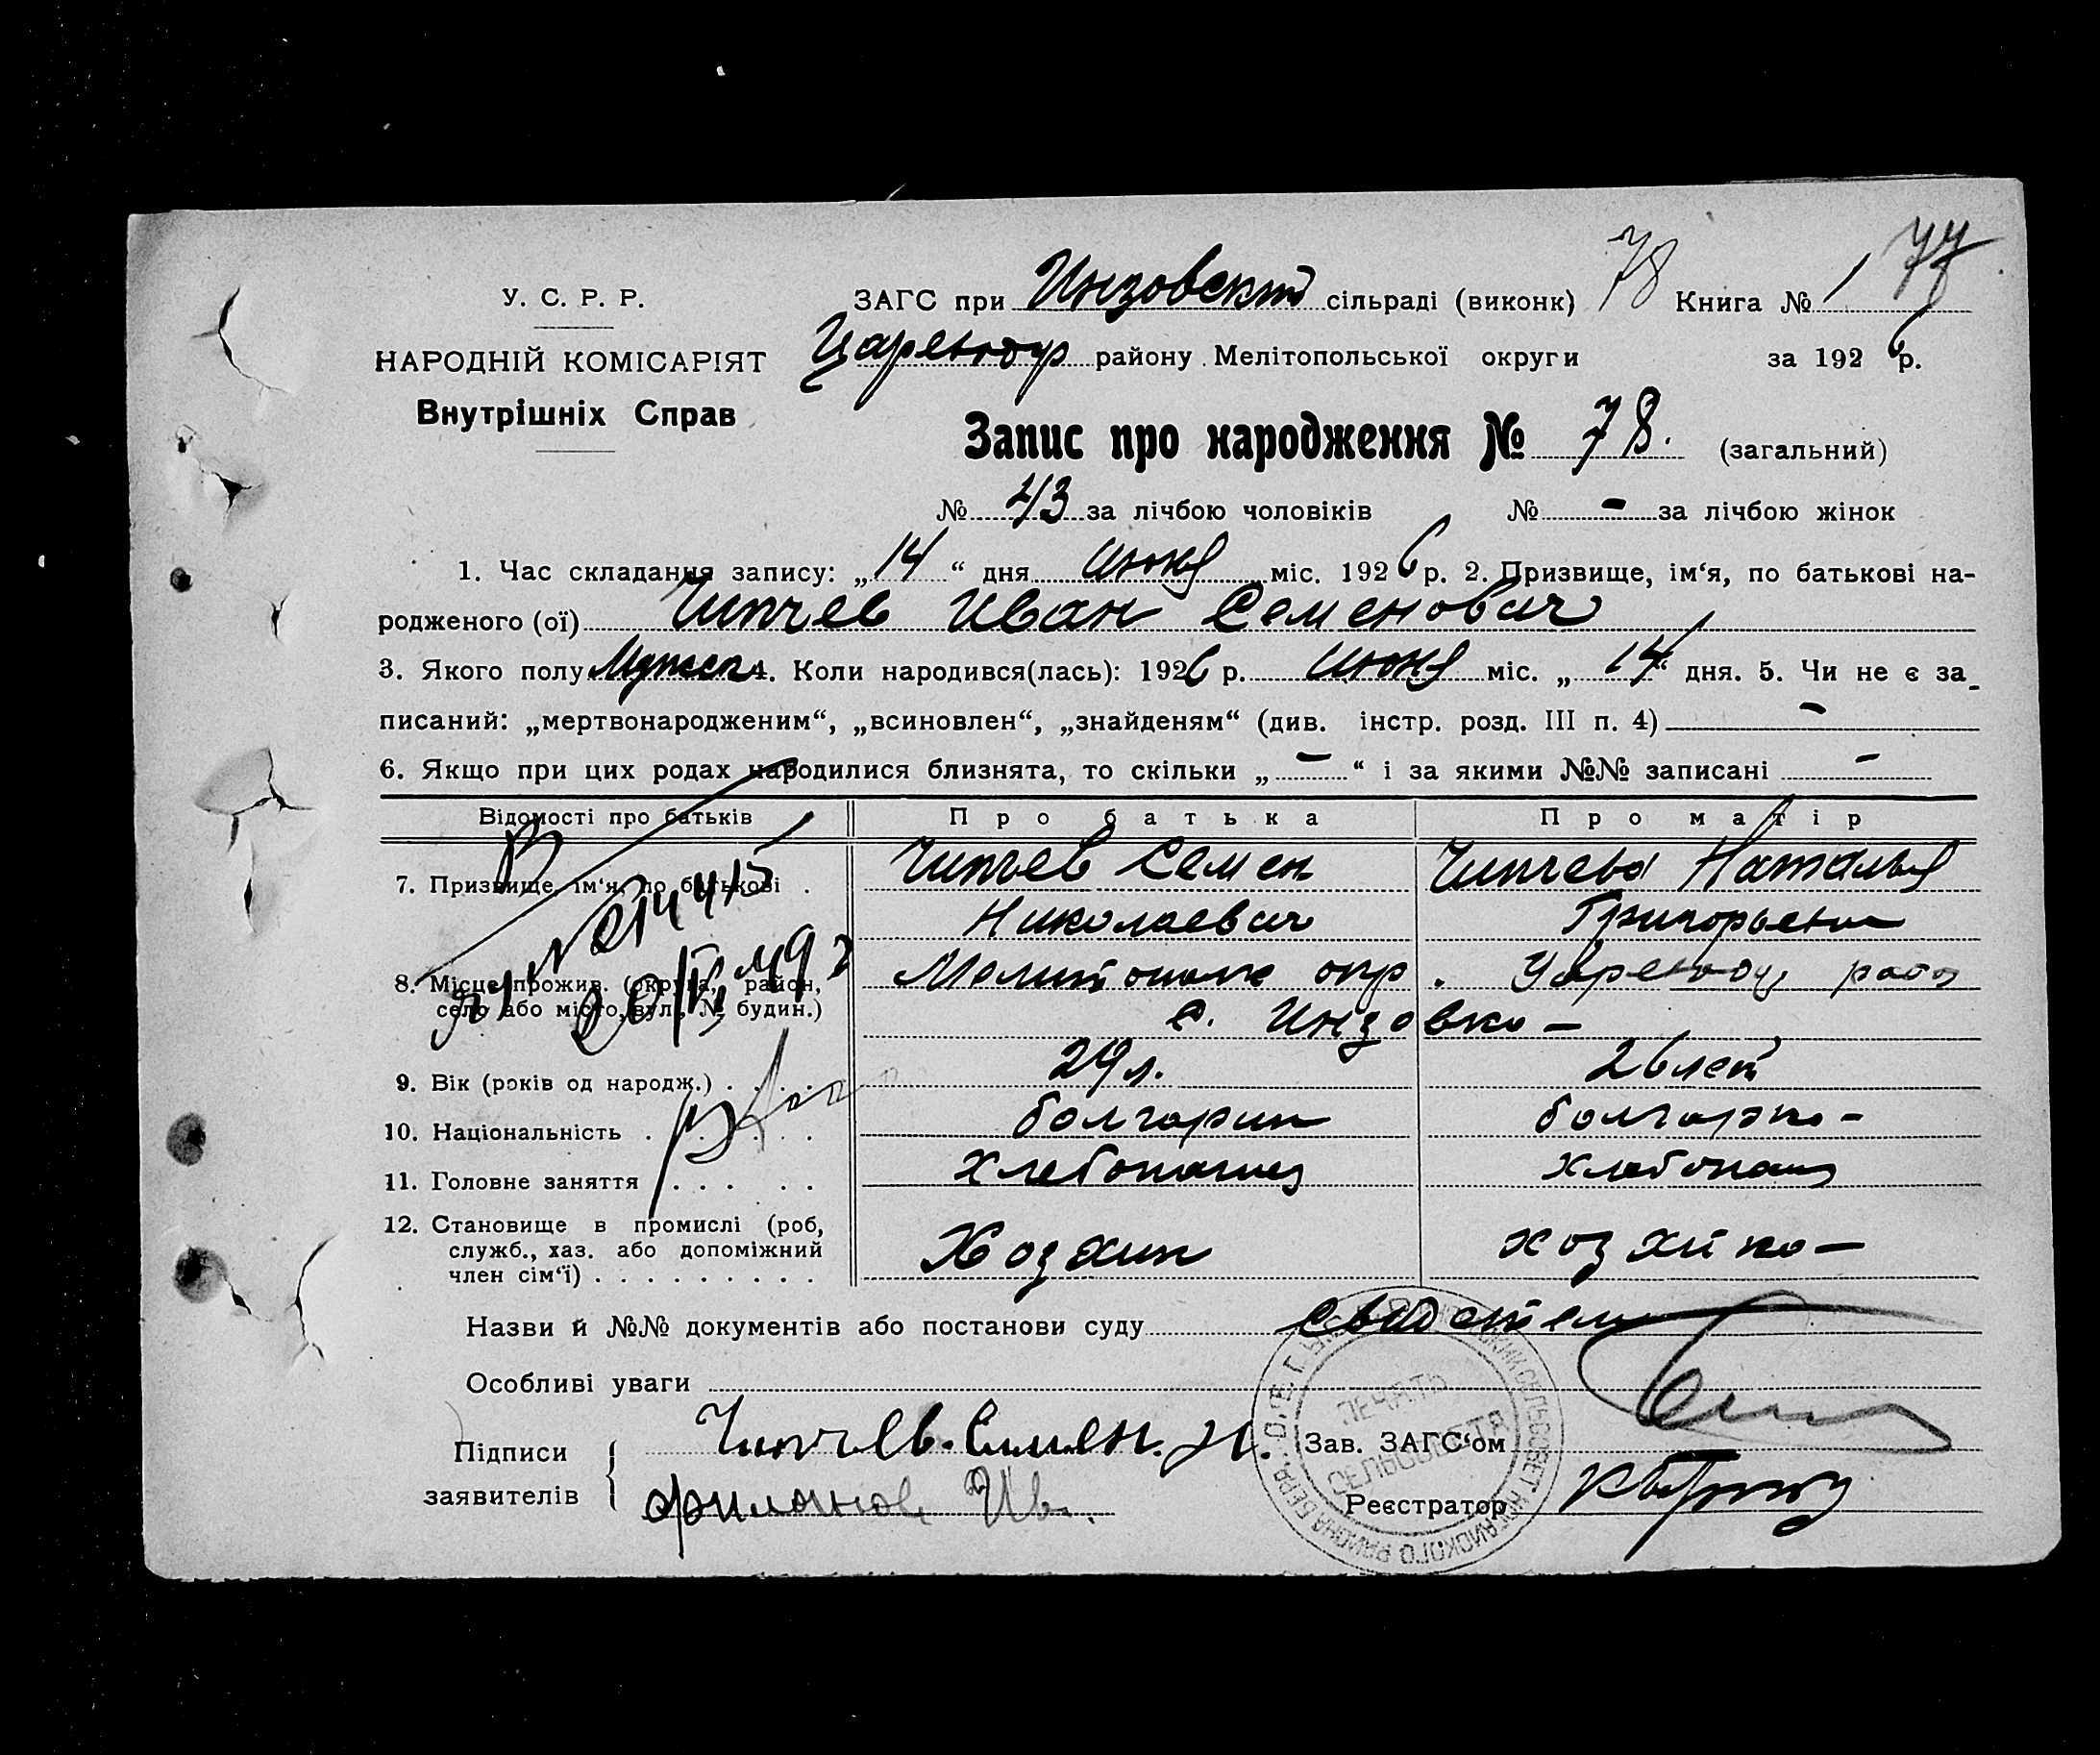 У. С. Р. Р.
НАРОДНІЙ КОМІСАРІЯТ
Внутрішніх Справ
ЗАГС при Инзовском сільраді (виконк) 78 Книга № 1 77
Царевод район у Мелітопольської округи за 1926 р.
Запис про народження № 78. (загальний)
№ 43 за лічбою чоловіків № - за лічбою жінок
1. Час складання запису: „14“ дня июня міс. 1926 р. 2. Призвище, ім‘я, по батькові на-
родженого (ої) Чипчев Иван Семенович
3. Якого полу Мужск 4. Коли народився(лась): 1926 р. июня міс. „14“ дня. 5. Чи не є за-
писаний: „мертвонародженим“, „всиновлен“, „знайденям“ (див. інстр. розд. III п. 4) -
6. Якщо при цих родах народилися близнята, то скільки „-“ і за якими №№ записані -
Відомості про батьків Про батька Про матір
7. Призвище, ім‘я, по батькові . Чипчев Семен Чипчева Наталья
Николаевич Григорьевна
8. Місце прожив. (округа, район, Мелитопольс окр. Царевод район
село або місто, вул., № будин.) с. Инзовка -
9. Вік (років од народж.) . . . . 29 л. 26 лет
10. Національність . . . . . болгарин болгарка -
11. Головне заняття . . . . . хлебопашец хлебопаш
12. Становище в промислі (роб, Хозяин хозяйка -
служб., хаз. або допоміжний
член сім‘ї) . . . . . . . . .
Назви й №№ документів або постанови суду свидетели
Особливі уваги
Підписи Чипчев. Семен. Н. Зав. ЗАГС‘ом
заявителів Филанов Ив. Реєстратор
ПЕЧАТЬ
СЕЛЬСОВЕТА